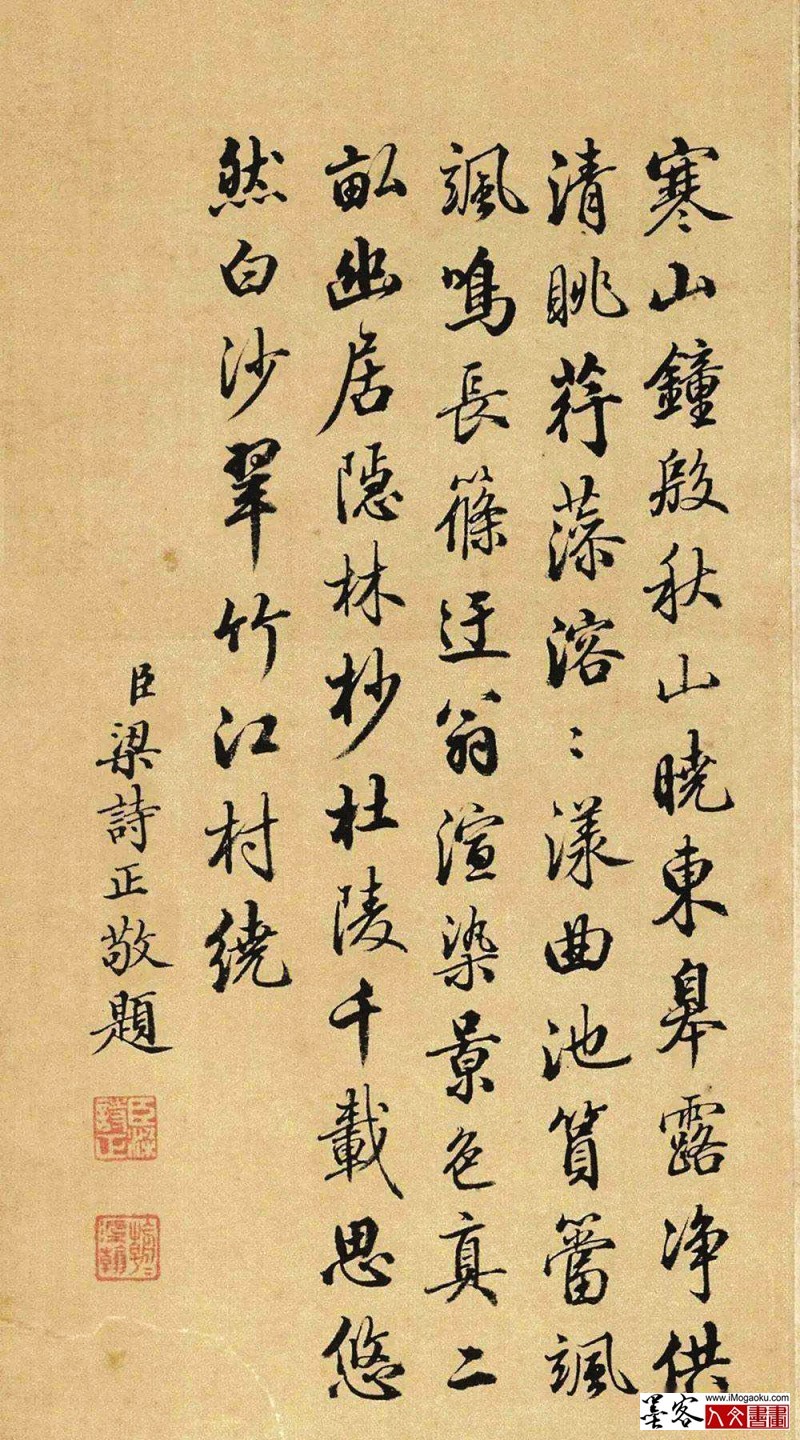 寒山鐘殷秋山曉東皋露净供
清眺荇藻溶〻漾曲池篔簹颯
颯鳴長篠迂翁渲染景色真二
畝幽居隱林杪杜陵千載思悠
然白沙翠竹江村繞
臣梁詩正敬題
www.iMogaoku.com
墨客
人文書畫